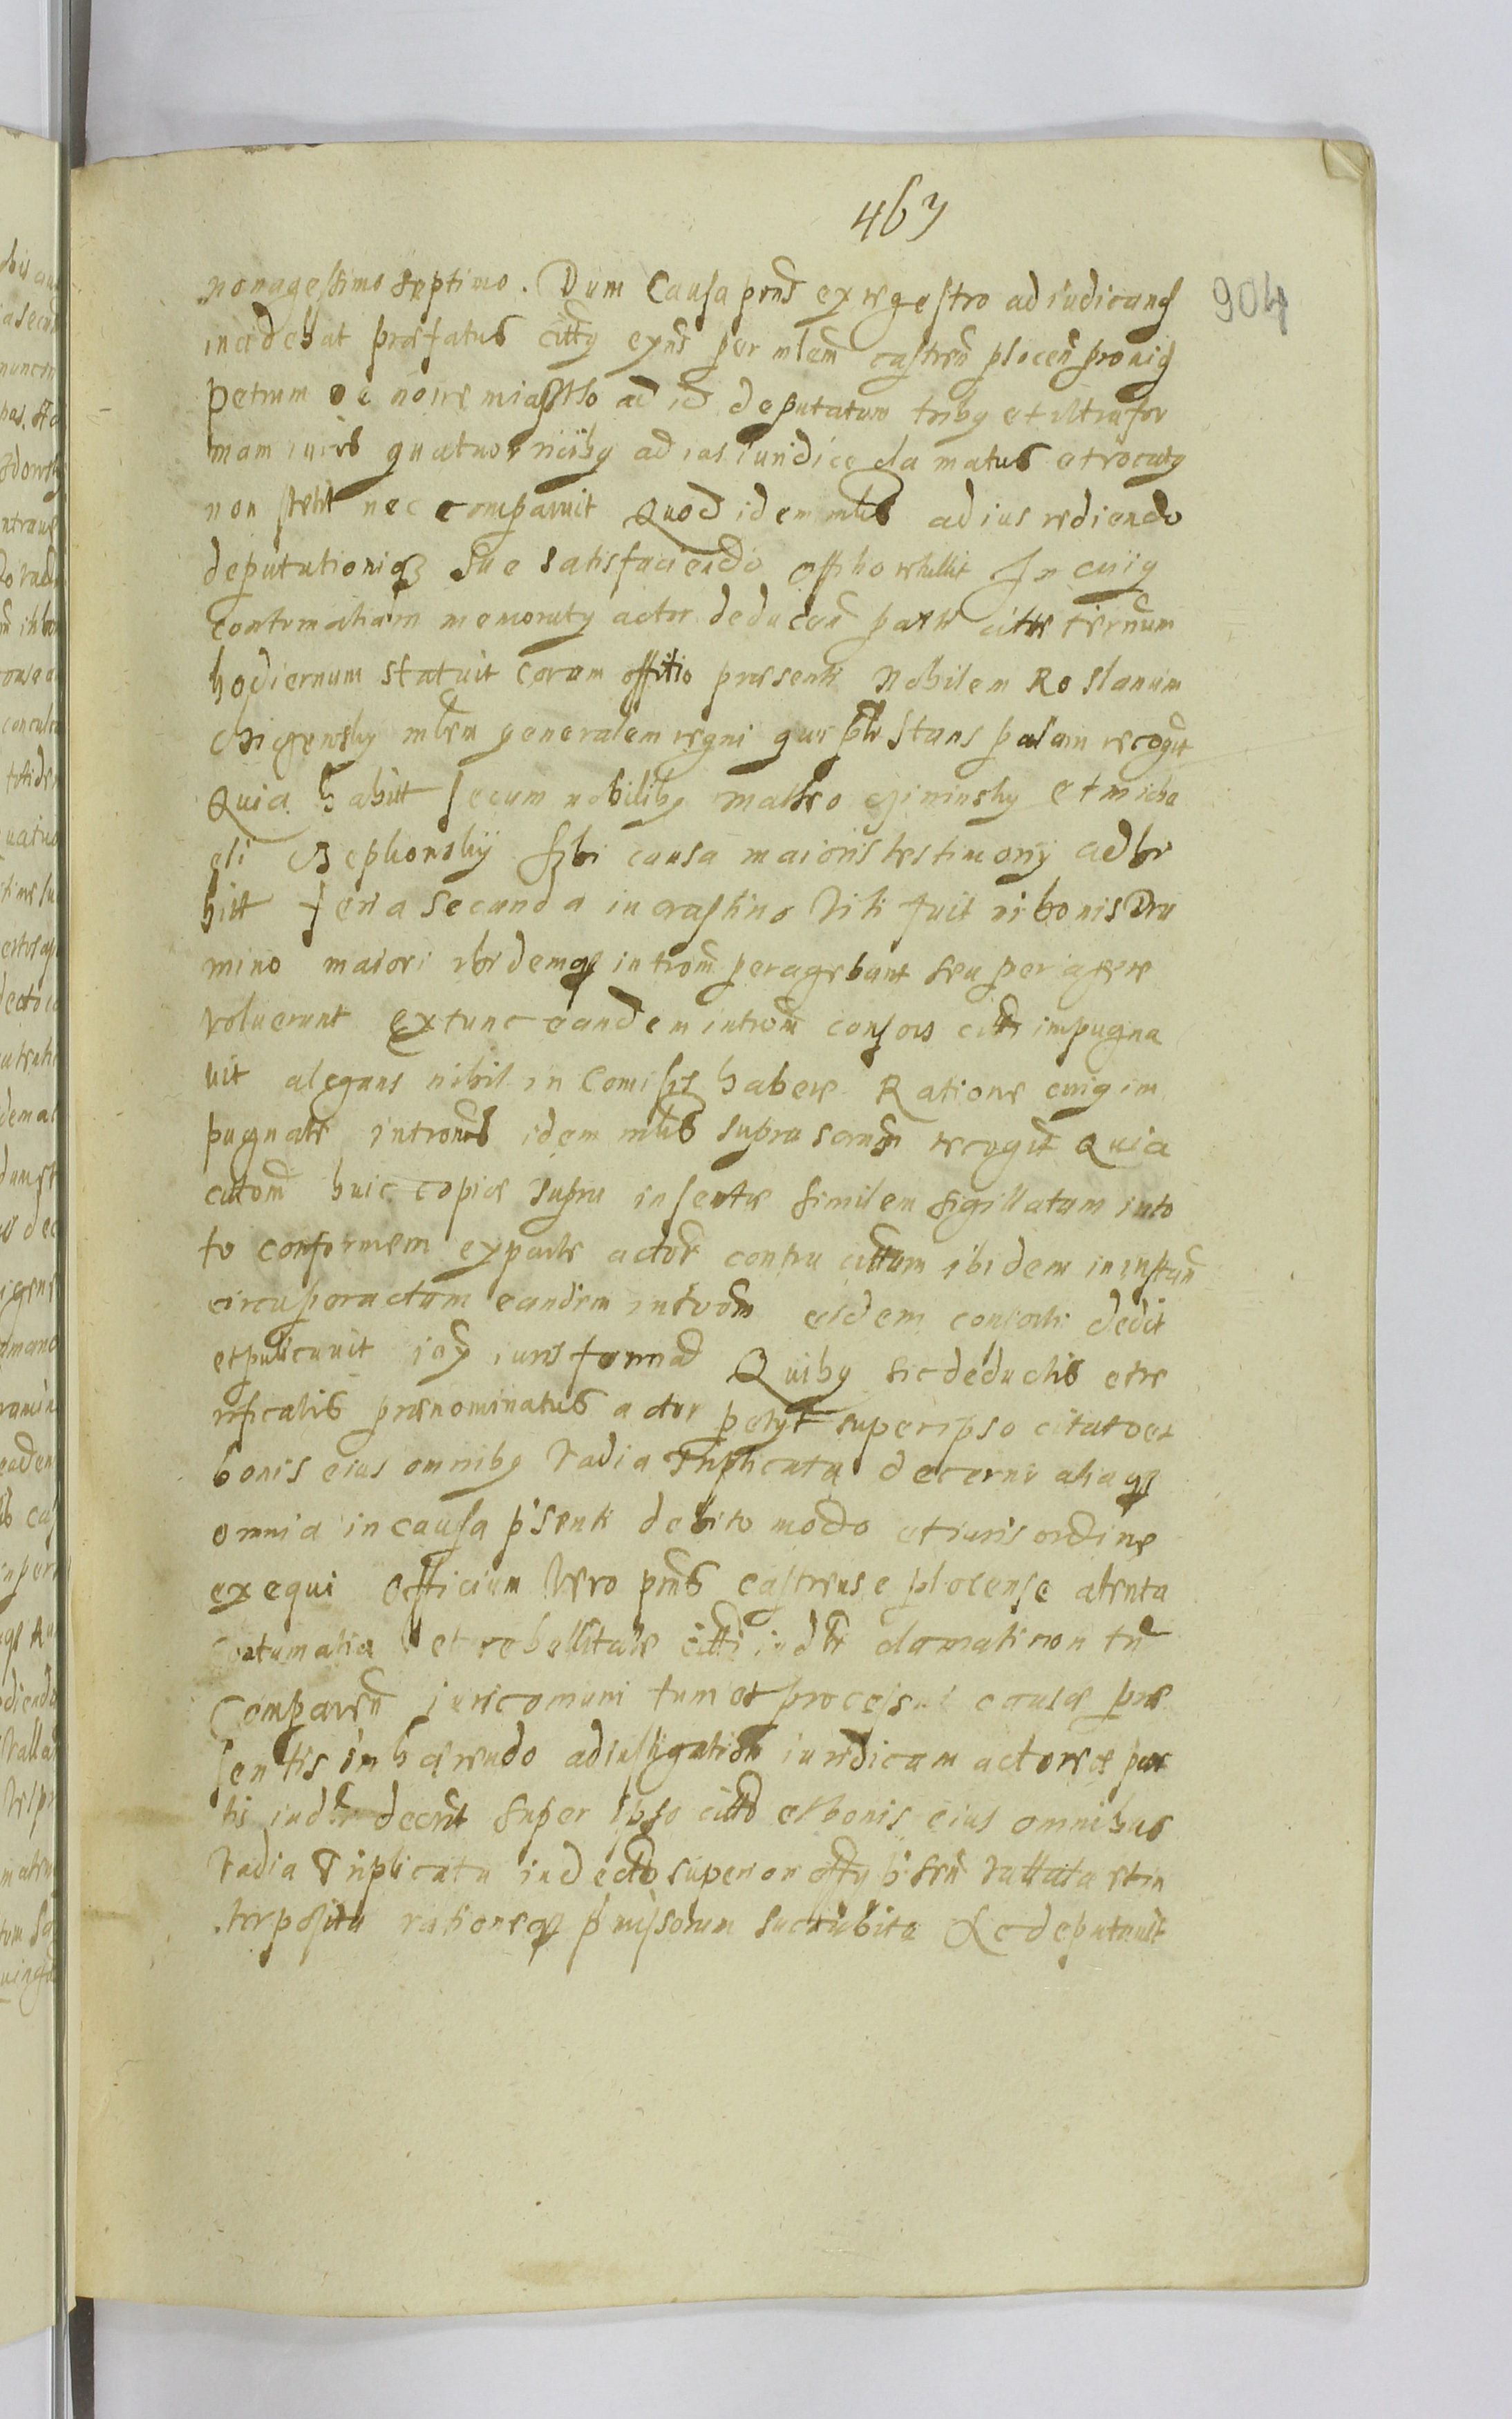 467
904
nonagessimo septimo. Dum Causa pns ex regestro ad iudicand
incidebat præfatus citt9 exns per mlem castren plocen prouid
Petrum de nowe miastho ad id deputatum trib9 et vltra for
mam iuris quatuor vicib9 ad ius iuridice clamatus et vocat9
non stetit nec comparuit Quod idem mlis ad ius rediendo
deputationiq3 sue satisfaciendo offitio retullit In cui9
contumatiam memorat9 actor deducen parte citte terminum
hodiernum statuit coram offitio præsenti Nobilem Roslanum
mlem generalem regni qui ple stans palam recogt
Quia habuit secum nobilib9 Matheo et Micha
eli sibi causa maioris testimonij adhi
bitt feria secunda in crastino Viti fuit in bonis Dra
mino maiori ibidemq3 introm peragebant seu periagere
voluerunt extunc eandem introm consors citti impugna
uit alegans nihil in Comissis habere Ratione cui9 im
pugnate intromis idem mlis supra scrips recogt Quia
cittom huic copiæ supra insertæ similem sigillatam in to
to conformem ex parte actor contra cittum ibidem in instan
circa peractam eandem introm eidem consorti dedit
et publicauit iux iuris formā Quib9 sic deductis et ve
rificatis prænominatus actor petyt super ipso citato et
bonis eius omnib9 Vadia Triplicata decerni aliaq3
omnia in causa p'senti debito modo et iuris ordine
exequi Officium Vero pns castrense plocense atenta
contumatia et rebellitate citti iudlr clamati non tn
Comparen iuri comuni tum et processui causæ præ
sentis inhærendo ad instigation iuridicam actoreæ par
tis iudlr decrit super ipso citto et bonis eius omnibus
Vadia Triplicata in decto superiori off9 p'sen vallata et in
terposita rationeq3 p'missorum succubita &c deputauit